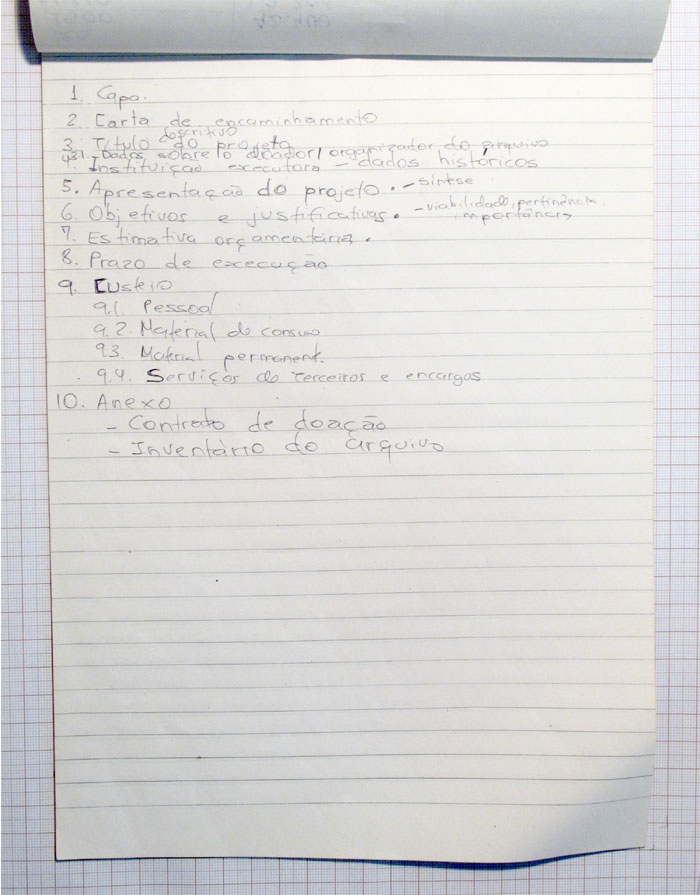 1. Capa.
2. Carta de encaminhamento
descritivo
3. Título do projeto
3.1. Dados sobre o doador/organizador do arquivo
4. Instituição executora - dados históricos
5. Apresentação do projeto. - síntese
6. Objetivos e justificativas. - viabilidade, pertinência,
importância
7. Estimativa orçamentária.
8. Prazo de execução
9. Custeio
9.1. Pessoal
9.2. Material de consumo
9.3. Material permanent.
9.4. Serviços de terceiros e encargos
10. Anexo
- Contrato de doação
- Inventário do arquivo